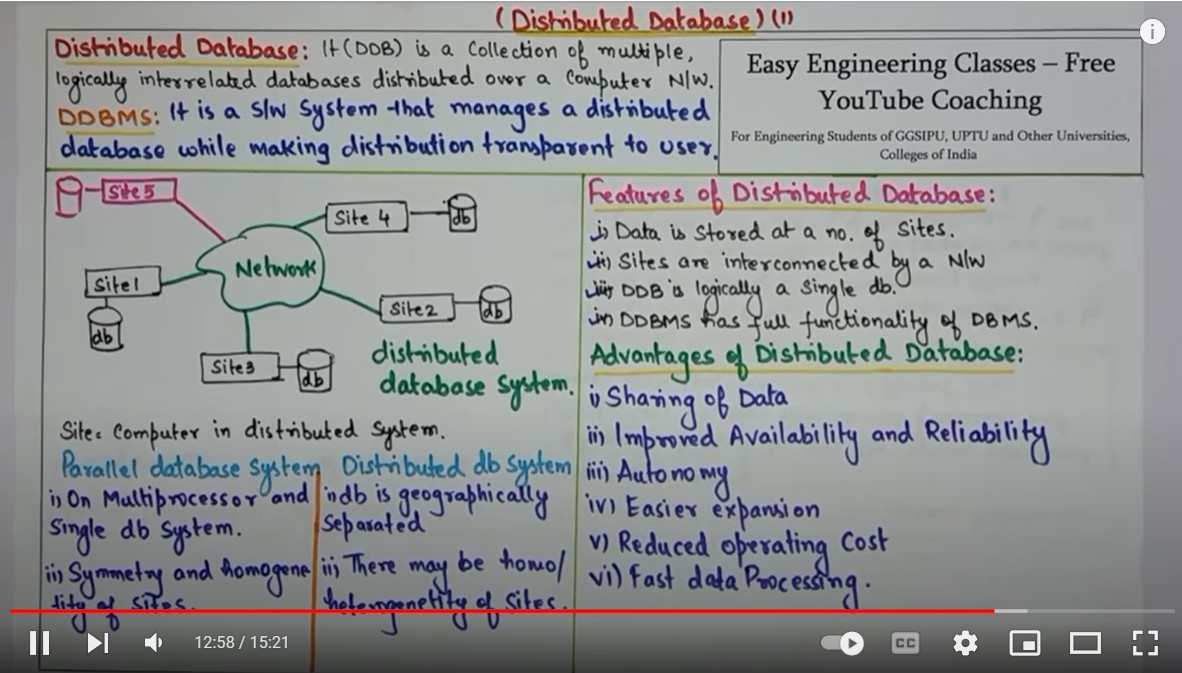 (Distributed Database) (1)
Distributed Database: It (DDB) is a Collection of multiple,
logically interrelated databases distributed over a Computer N/W.
DDBMS: It is a S/W System that manages a distributed
database while making distribution transparent to user.
Easy Engineering Classes – Free
YouTube Coaching
For Engineering Students of GGSIPU, UPTU and Other Universities,
Colleges of India
Site 5
Site 4
db
Network
Site1
db
Site2
db
Site3
db
distributed
database System.
Site: Computer in distributed System.
Parallel database System
i) On Multiprocessor and
Single db System.
ii) Symmetry and homogene
ity of Sites.
Distributed db System
i) db is geographically
Separated
ii) There may be homo/
heterogenetity of Sites.
Features of Distributed Database:
i) Data is Stored at a no. of Sites.
ii) Sites are interconnected by a N/W
iii) DDB is logically a Single db.
iv) DDBMS has full functionality of DBMS.
Advantages of Distributed Database:
i) Sharing of Data
ii) Improved Availability and Reliability
iii) Autonomy
iv) Easier expansion
v) Reduced operating Cost
vi) Fast data Processing.
12:58 / 15:21
CC